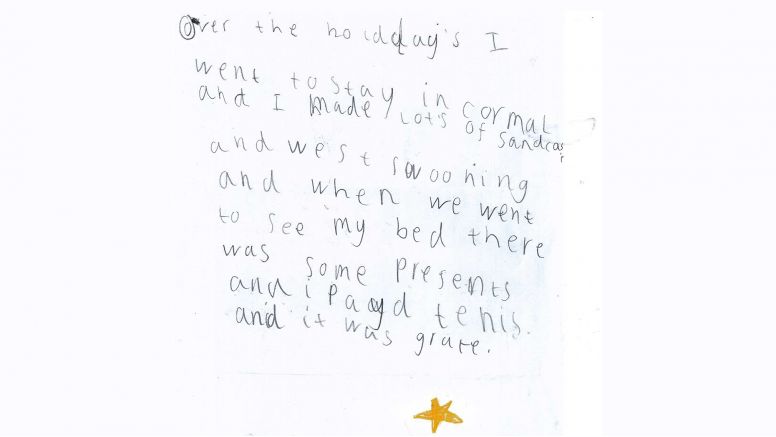 Over the hoidday's I
went to stay in cormal
and I made lots of sandcas
and west swooning
and when we went
to see my bed there
was some presents
and i payd tenis.
and it was grate.